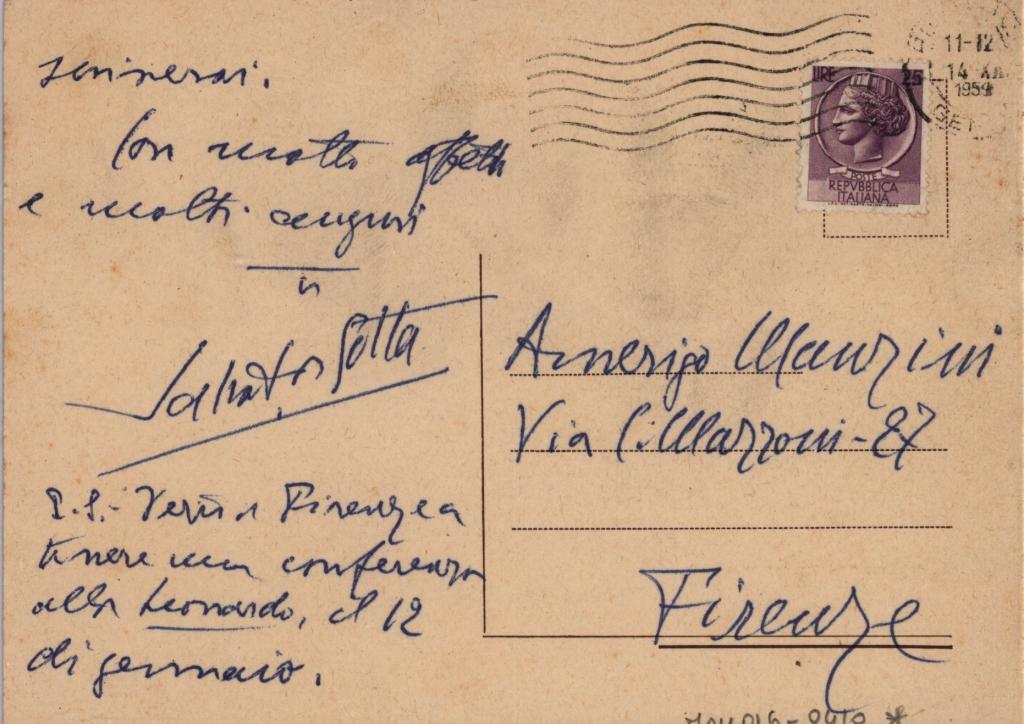 scriverai.
Con molto affetto
e molti auguri
tuo
Salvator Gotta
P.S. - Verrò a Firenze a
tenere una conferenza
alla Leonardo, il 12
di gennaio.
11-12
14 XII
1959
LIRE 25
POSTE
REPVBBLICA
ITALIANA
Amerigo Manzini
Via C. Mazzoni - 27
Firenze